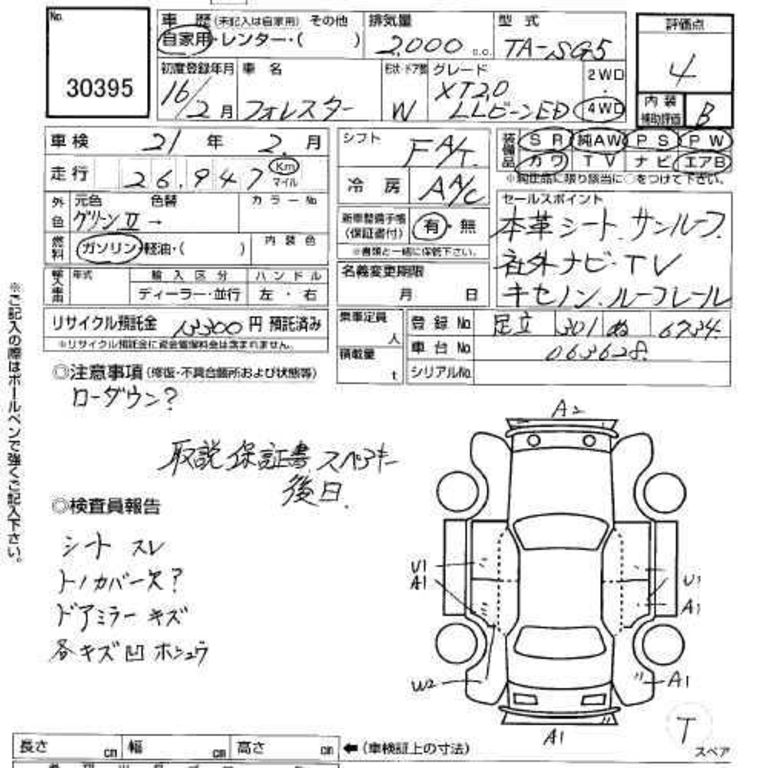 No.
30395
車歴(未記入は自家用) その他
自家用・レンター・( )
排気量
2,000 c.c.
型式
TA-SG5
評価点
4
内装補助評価 B
初度登録年月
16/2月
車名
フォレスター
形状・ドア数
W
グレード
XT20
LLビーンED
2WD
4WD
車検 21年 2.月
走行 26,947 Km マイル
シフト FA/T.
冷房 AA/C
装備品 SR 純AW PS PW
カワ TV ナビ エアB
※純正品に限り該当に○をつけて下さい。
外色 元色 色替 カラーNo
グリーンII →
燃料 ガソリン・軽油・( ) 内装色
新車整備手帳(保証書付) 有・無
※書類と一緒に保管下さい。
セールスポイント
本革シート.サンルーフ.
社外ナビ・TV
キセノン.ルーフレール
輸入車用 年式 輸入区分 ハンドル
ディーラー・並行 左・右
名義変更期限
月 日
リサイクル預託金 13300円 預託済み
※リサイクル預託金に資金管理料金は含まれません。
乗車定員 人
積載量 t
登録No 足立 301 ぬ 6734
車台No 063628.
シリアルNo
◎注意事項(修復・不具合箇所および状態等)
ローダウン?
取説 保証書 スペアキー
後日.
◎検査員報告
シート スレ
トノカバー欠?
ドアミラー キズ
各キズ凹 ホシュウ
※ご記入の際はボールペンで強くご記入下さい。
A2
U1
A1
U1
A1
W2
A1
A1
T
スペア
長さ cm 幅 cm 高さ cm ←(車検証上の寸法)